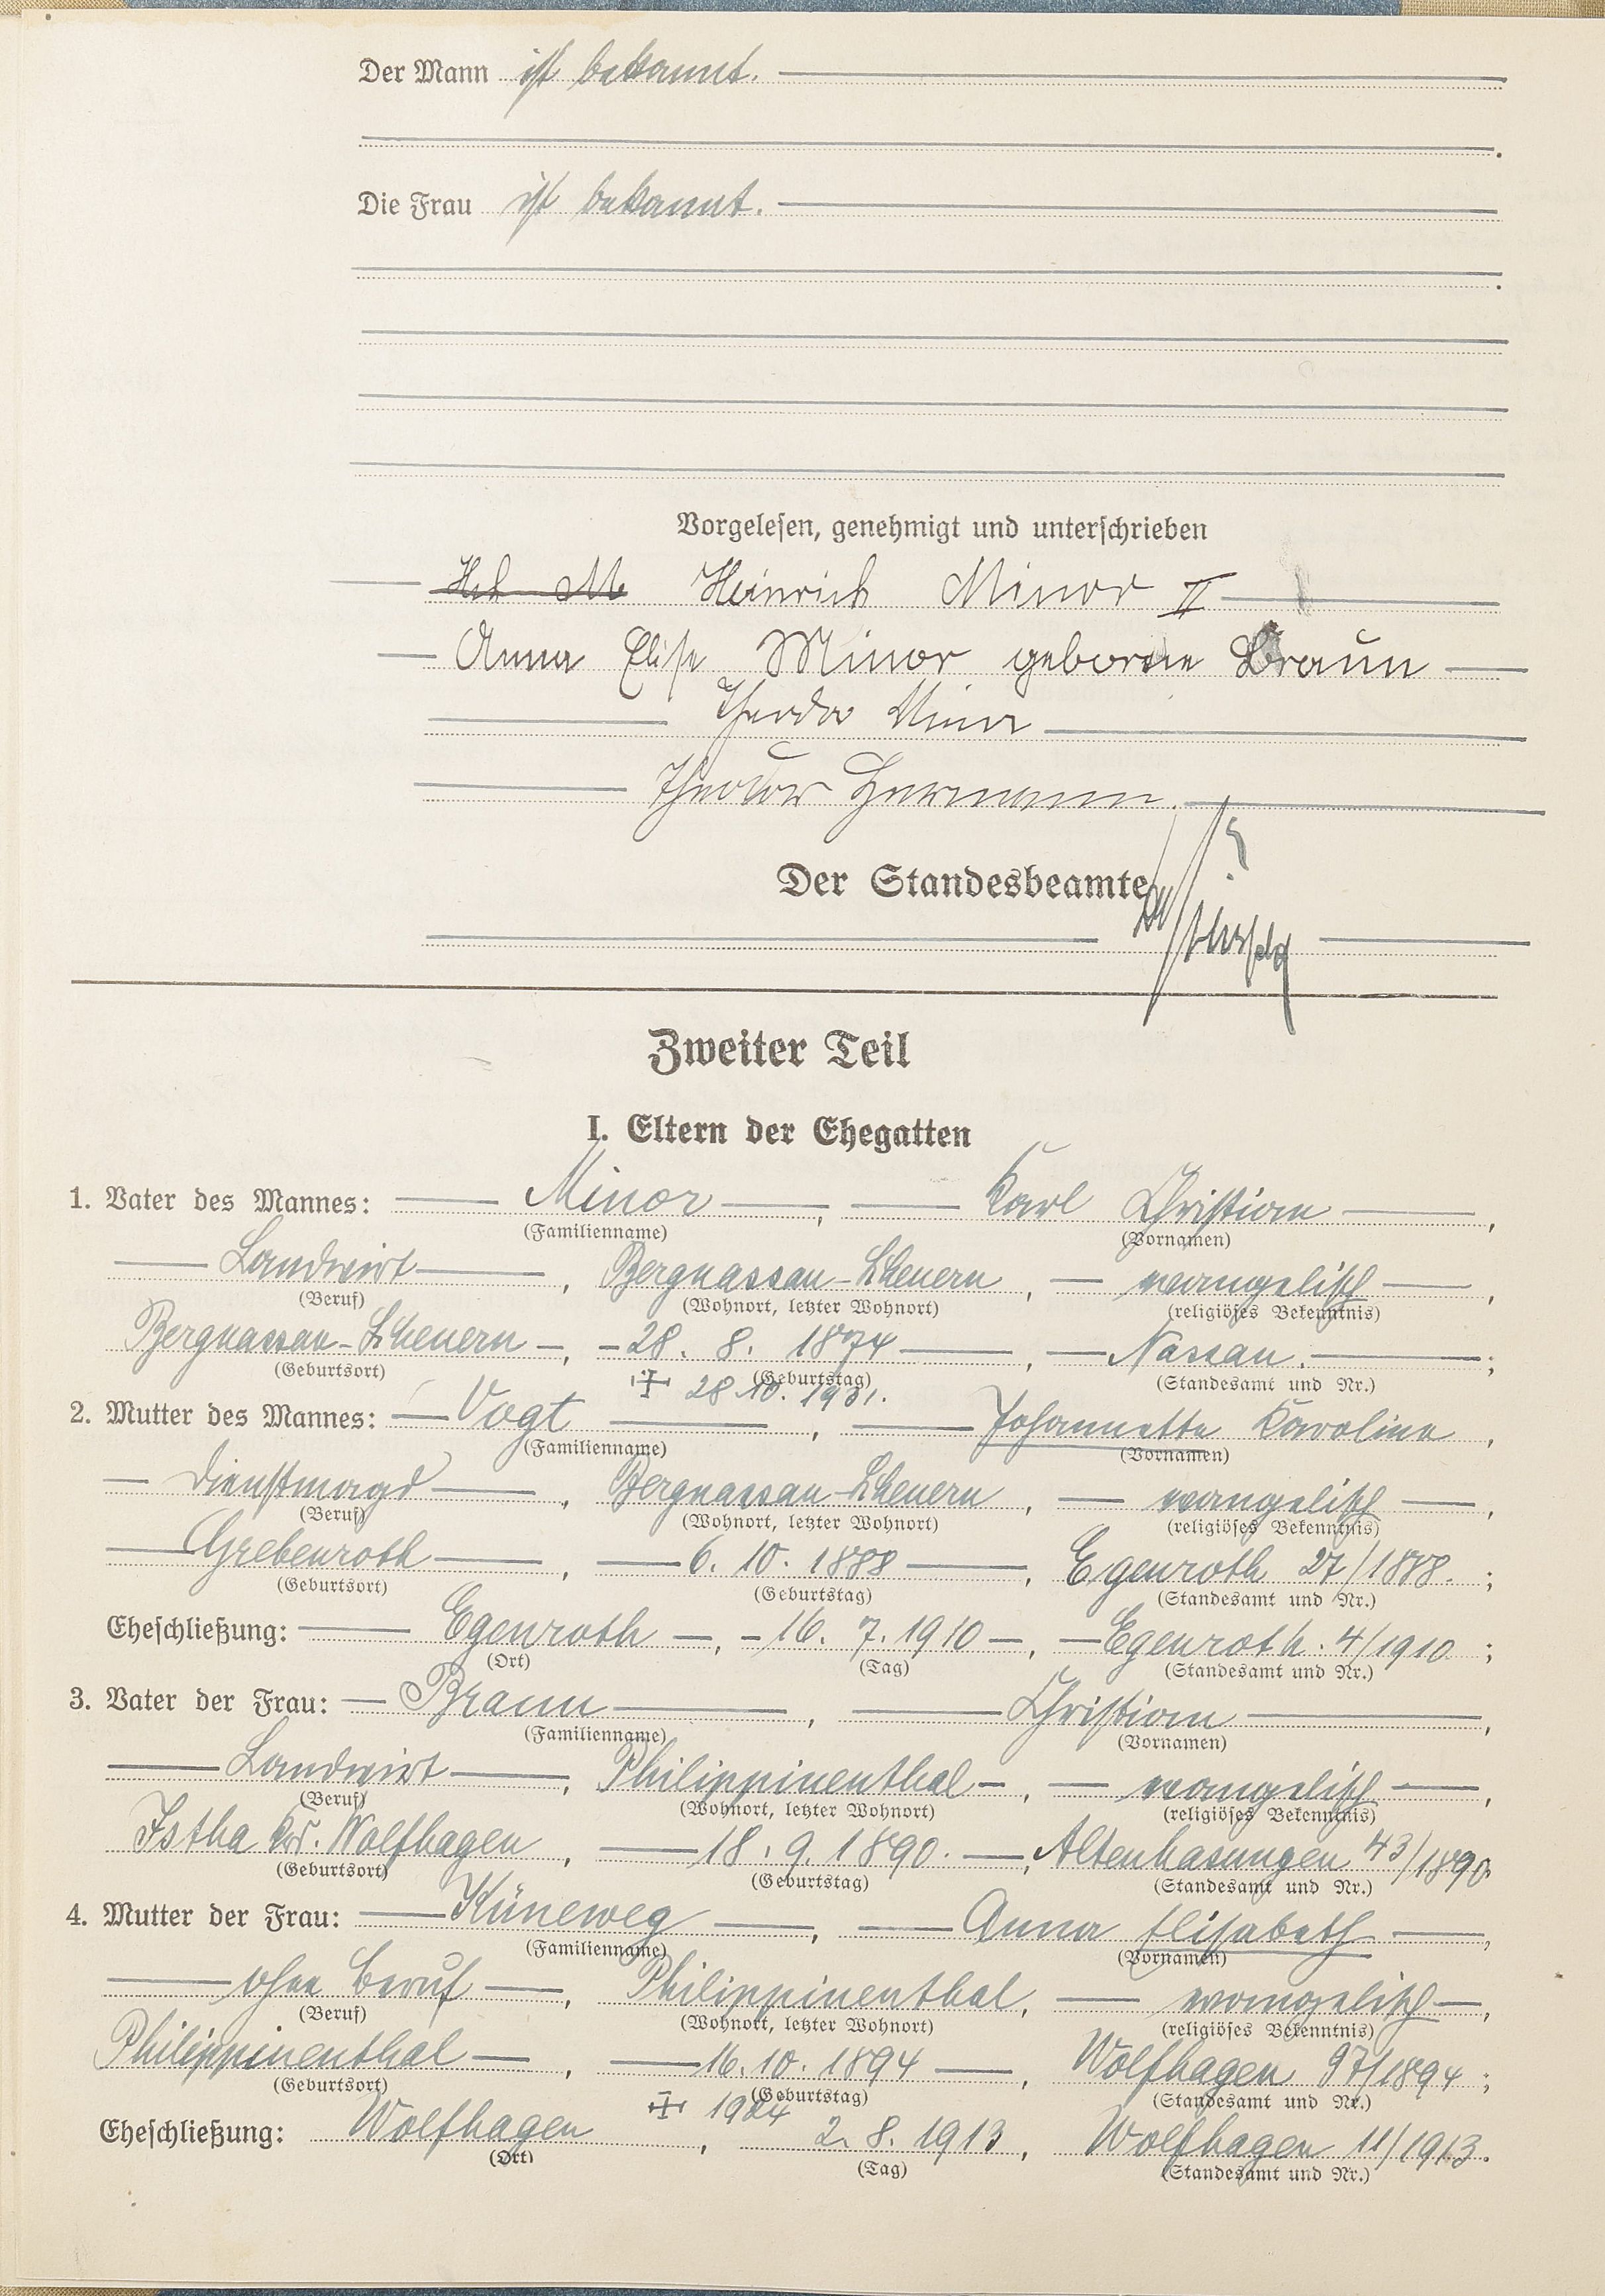 Der Mann ist bekannt.
Die Frau ist bekannt.
Vorgelesen, genehmigt und unterschrieben
Heinrich Minor II
Anna Elise Minor geborne Braun
Theodor Minor
Theodor Hermann.
Der Standesbeamte
Zweiter Teil
I. Eltern der Ehegatten
1. Vater des Mannes: Minor, Karl Christian,
(Familienname) (Vornamen)
Landwirt, Bergnassau-Scheuern, evangelisch,
(Beruf) (Wohnort, letzter Wohnort) (religiöses Bekenntnis)
Bergnassau-Scheuern, 28. 8. 1874, Nassau.;
(Geburtsort) (Geburtstag) (Standesamt und Nr.)
28.10.1931.
2. Mutter des Mannes: Vogt, Johannette Karoline,
(Familienname) (Vornamen)
Dienstmagd, Bergnassau-Scheuern, evangelisch,
(Beruf) (Wohnort, letzter Wohnort) (religiöses Bekenntnis)
Grebenroth, 6. 10. 1888, Egenroth 27/1888.;
(Geburtsort) (Geburtstag) (Standesamt und Nr.)
Eheschließung: Egenroth, 16. 7. 1910, Egenroth. 4/1910;
(Ort) (Tag) (Standesamt und Nr.)
3. Vater der Frau: Braun, Christian,
(Familienname) (Vornamen)
Landwirt, Philippinenthal, evangelisch,
(Beruf) (Wohnort, letzter Wohnort) (religiöses Bekenntnis)
Istha Krs. Wolfhagen, 18. 9. 1890., Altenhasungen 43/1890
(Geburtsort) (Geburtstag) (Standesamt und Nr.)
4. Mutter der Frau: Küneweg, Anna Elisabeth,
(Familienname) (Vornamen)
ohne Beruf, Philippinenthal, evangelisch,
(Beruf) (Wohnort, letzter Wohnort) (religiöses Bekenntnis)
Philippinenthal, 16. 10. 1894, Wolfhagen 97/1894;
(Geburtsort) (Geburtstag) (Standesamt und Nr.)
Eheschließung: Wolfhagen, 2. 8. 1913, Wolfhagen 11/1913.
(Ort) (Tag) (Standesamt und Nr.)